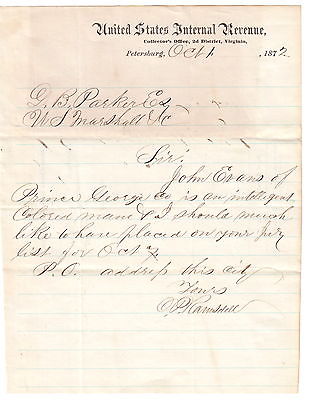 United States Internal Revenue,
Collector's Office, 2d District, Virginia,
Petersburg, Oct 1, 1872
D. B. Parker Esq
U S Marshall &c
Sir:
John Evans of
Prince George Co is an inteligent
Colored mane & I should much
like to have placed on your jury
list for Oct
P. O. address this city
Yours
C P Ramsdell